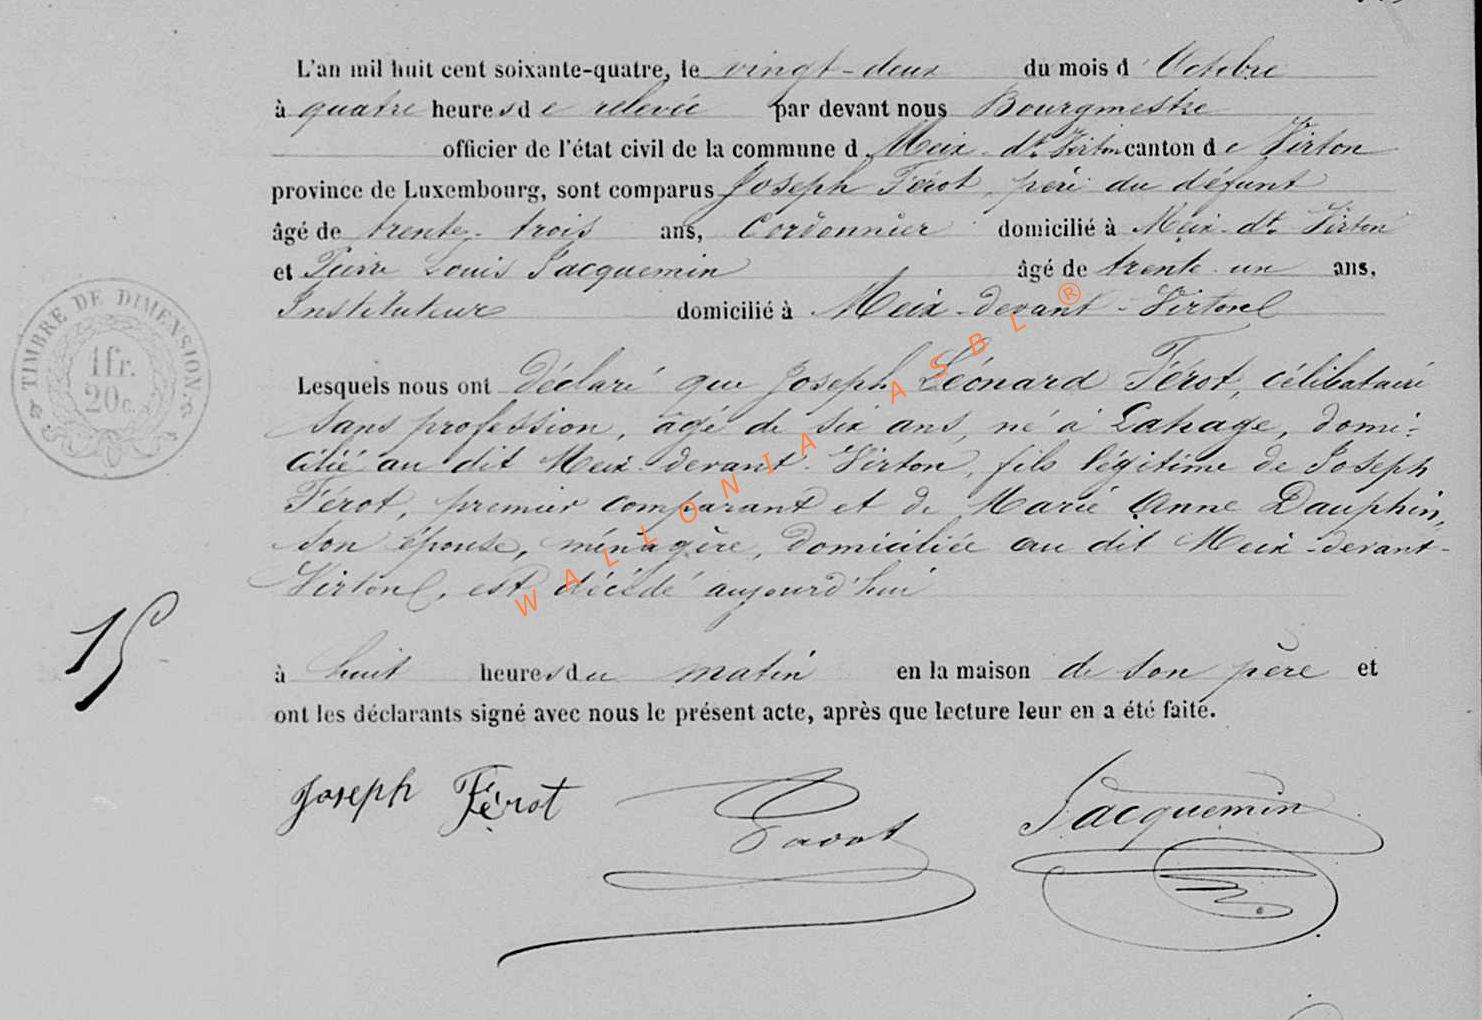 L'an mil huit cent soixante-quatre, le vingt-deux du mois d'Octobre
à quatre heures de relevée par devant nous Bourgmestre
officier de l'état civil de la commune d Meix-dt Virton canton de Virton
province de Luxembourg, sont comparus Joseph Férot, père du défunt
âgé de trente-trois ans, Cordonnier domicilié à Meix-dt Virton
et Pierre Louis Jacquemin âgé de trente-un ans,
Instituteur domicilié à Meix-devant-Virton
TIMBRE DE DIMENSION.
1 fr.
20 c.
Lesquels nous ont déclaré que Joseph Léonard Férot, célibataire
sans profession, âgé de six ans, né à Lahage, domi-
cilié au dit Meix-devant-Virton, fils légitime de Joseph
Férot, premier comparant et de Marie Anne Dauphin,
son épouse, ménagère, domiciliée au dit Meix-devant-
Virton, est décédé aujourd'hui
15
à huit heures du matin en la maison de son père et
ont les déclarants signé avec nous le présent acte, après que lecture leur en a été faite.
Joseph Férot Jacquemin
WALLONIA ASBL ®